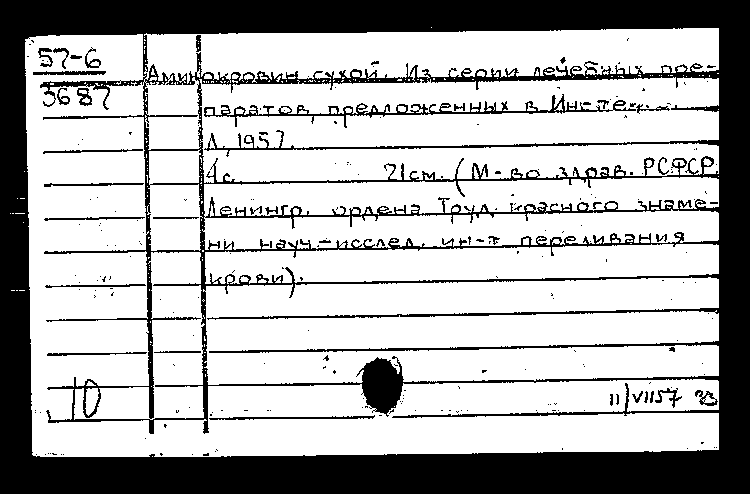 57-6
3687
Аминокровин сухой. Из серии лечебных пре-
паратов, предложенных в Инсте
Л., 1957.
4 с. 21 см. (М-во здрав. РСФСР.
Ленингр. ордена Труд. красного знаме-
ни науч.-исслед. ин-т переливания
крови).
10
11/VII57